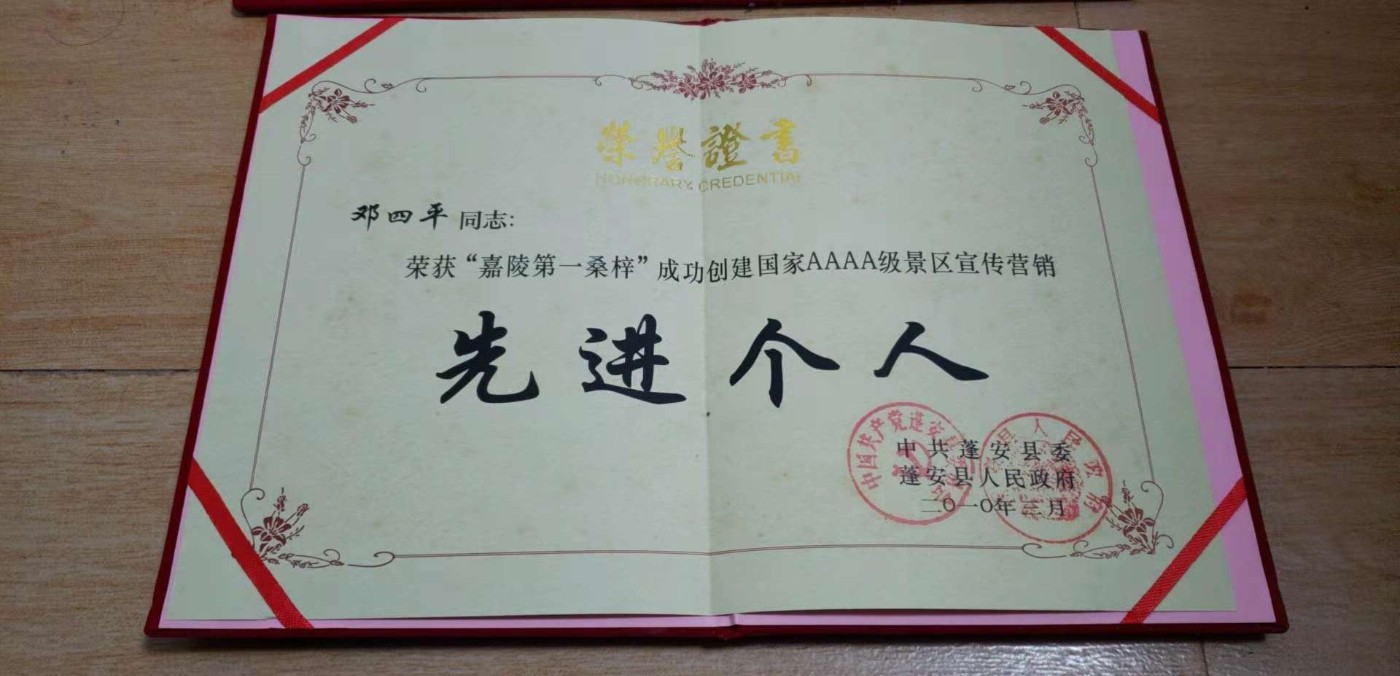 榮譽證書
HONORARY CREDENTIAL
邓四平同志:
荣获“嘉陵第一桑梓”成功创建国家AAAA级景区宣传营销
先进个人
中共蓬安县委
蓬安县人民政府
二〇一〇年三月
中国共产党蓬安
县人民政府